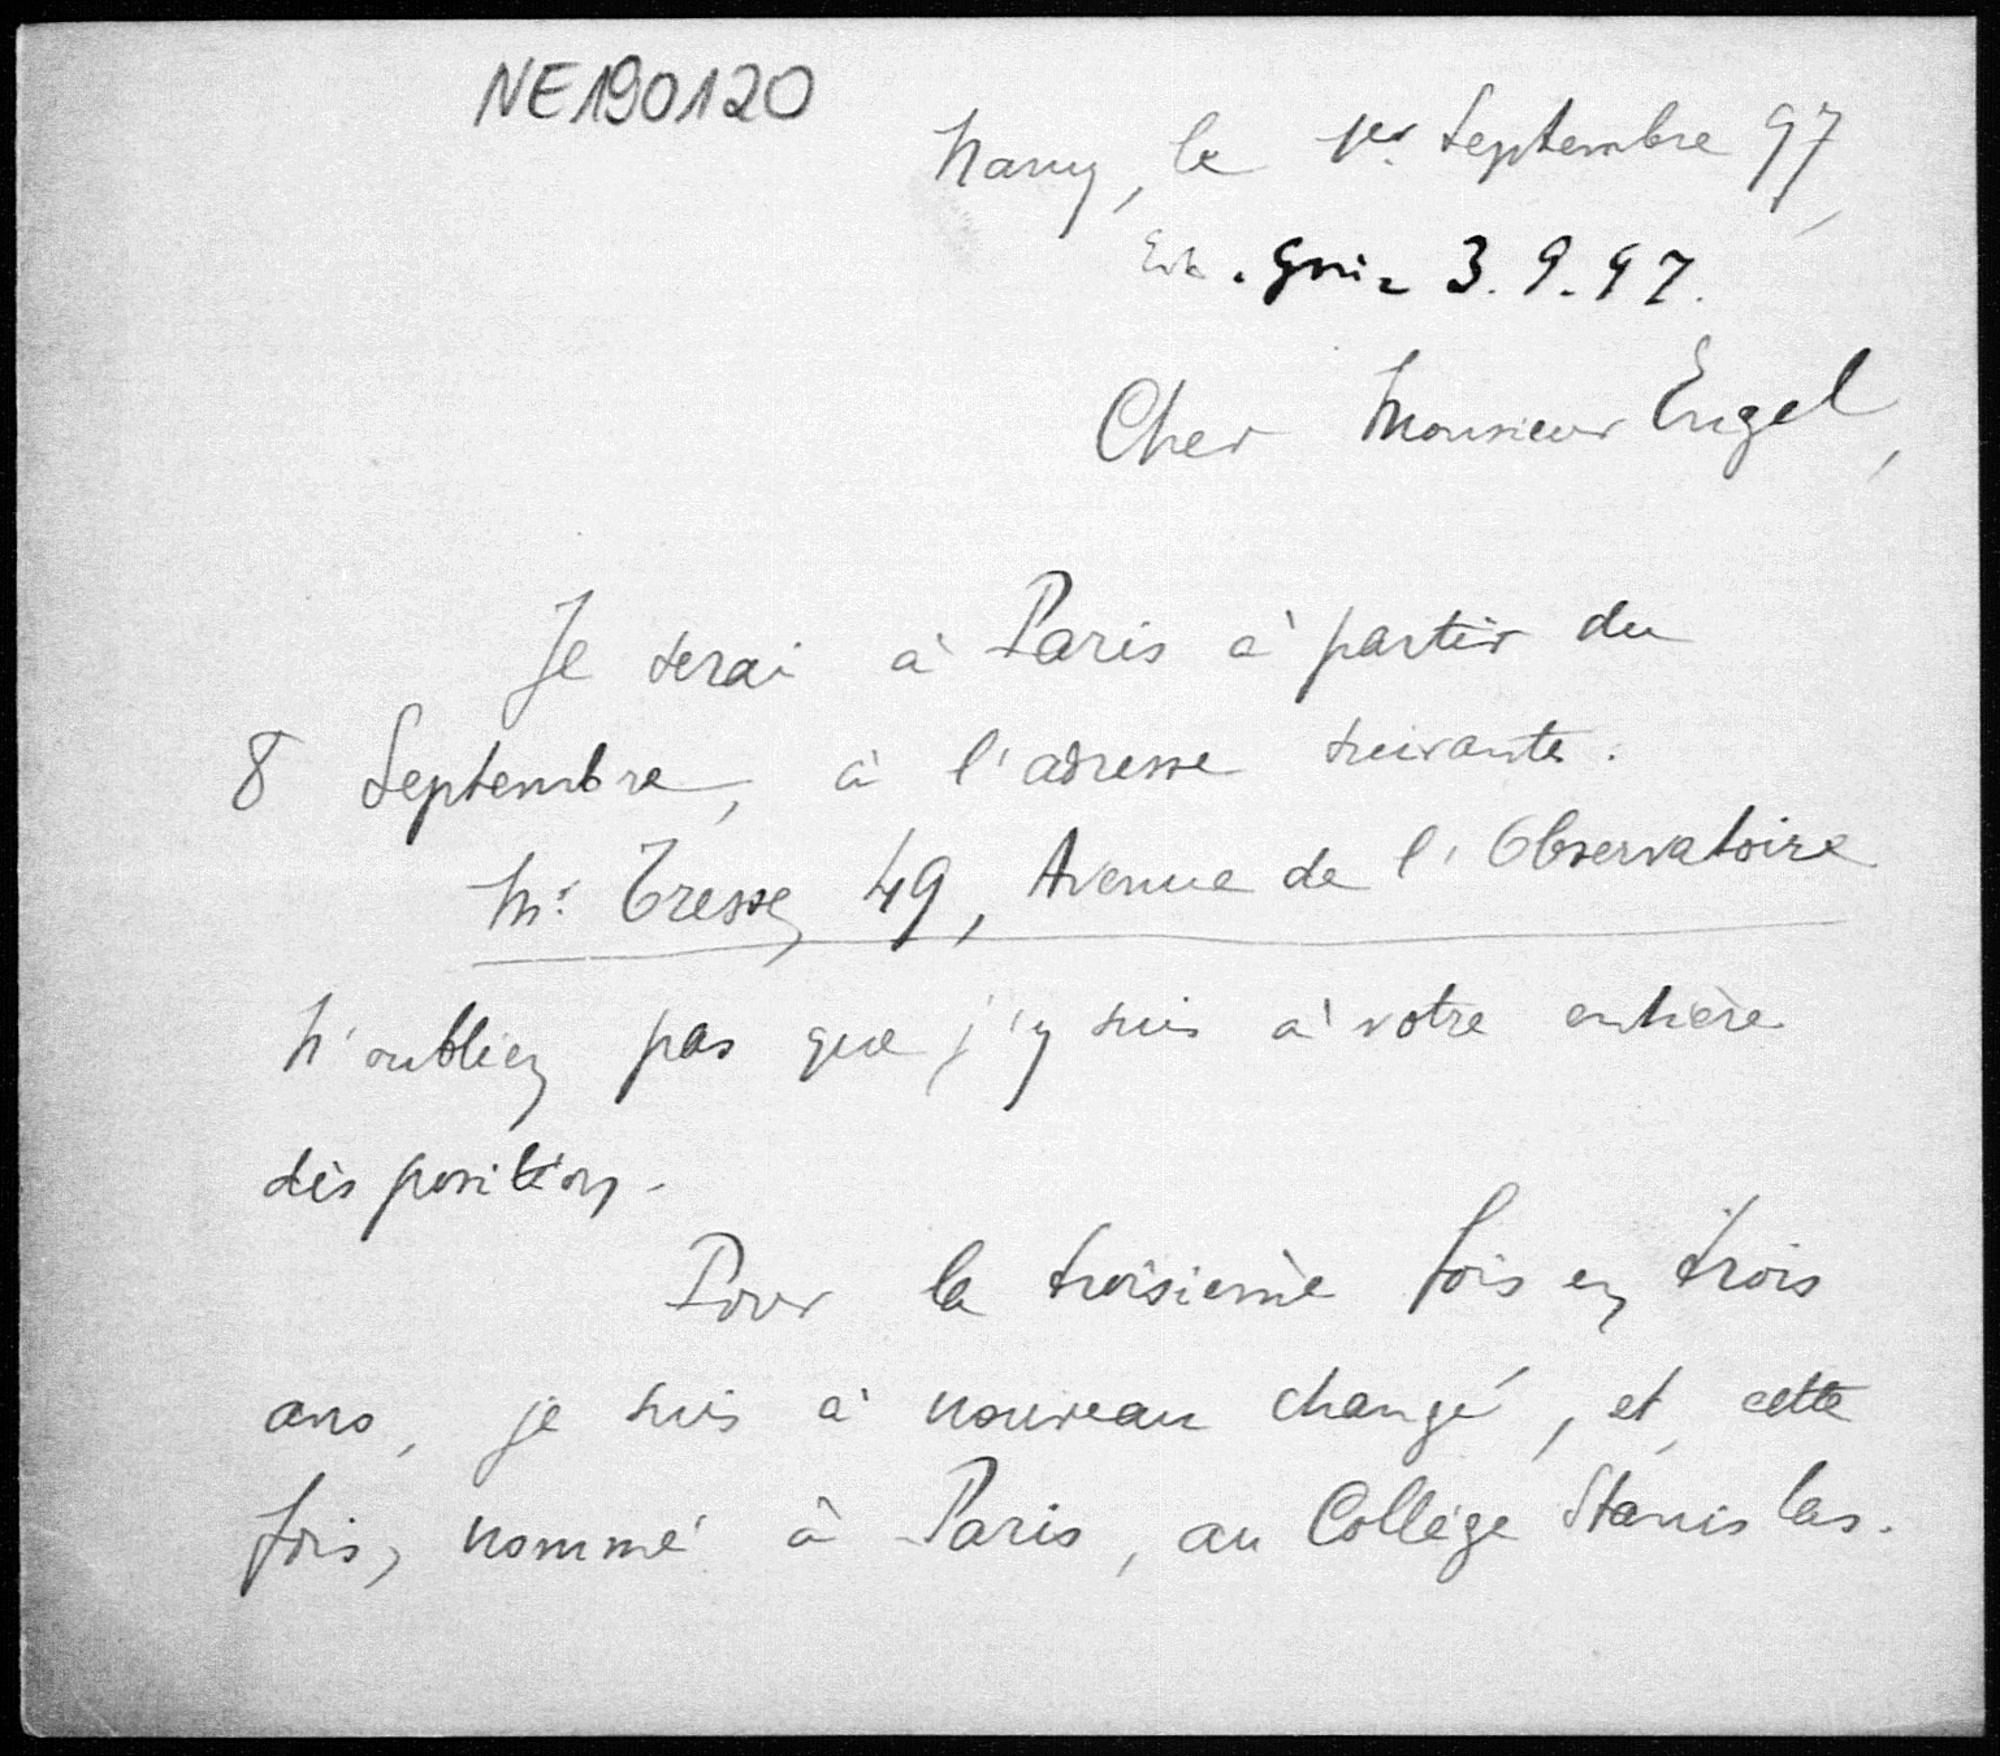 NE190120
Nancy, le 1er Septembre 97,
3.9.97.
Cher Monsieur Engel,
Je serai à Paris à partir du
8 Septembre, à l'adresse suivante :
Mr Tresse, 49, Avenue de l'Observatoire
N'oubliez pas que j'y suis à votre entière
disposition.
Pour la troisième fois en trois
ans, je suis à nouveau changé, et, cette
fois, nommé à Paris, au Collège Stanislas.